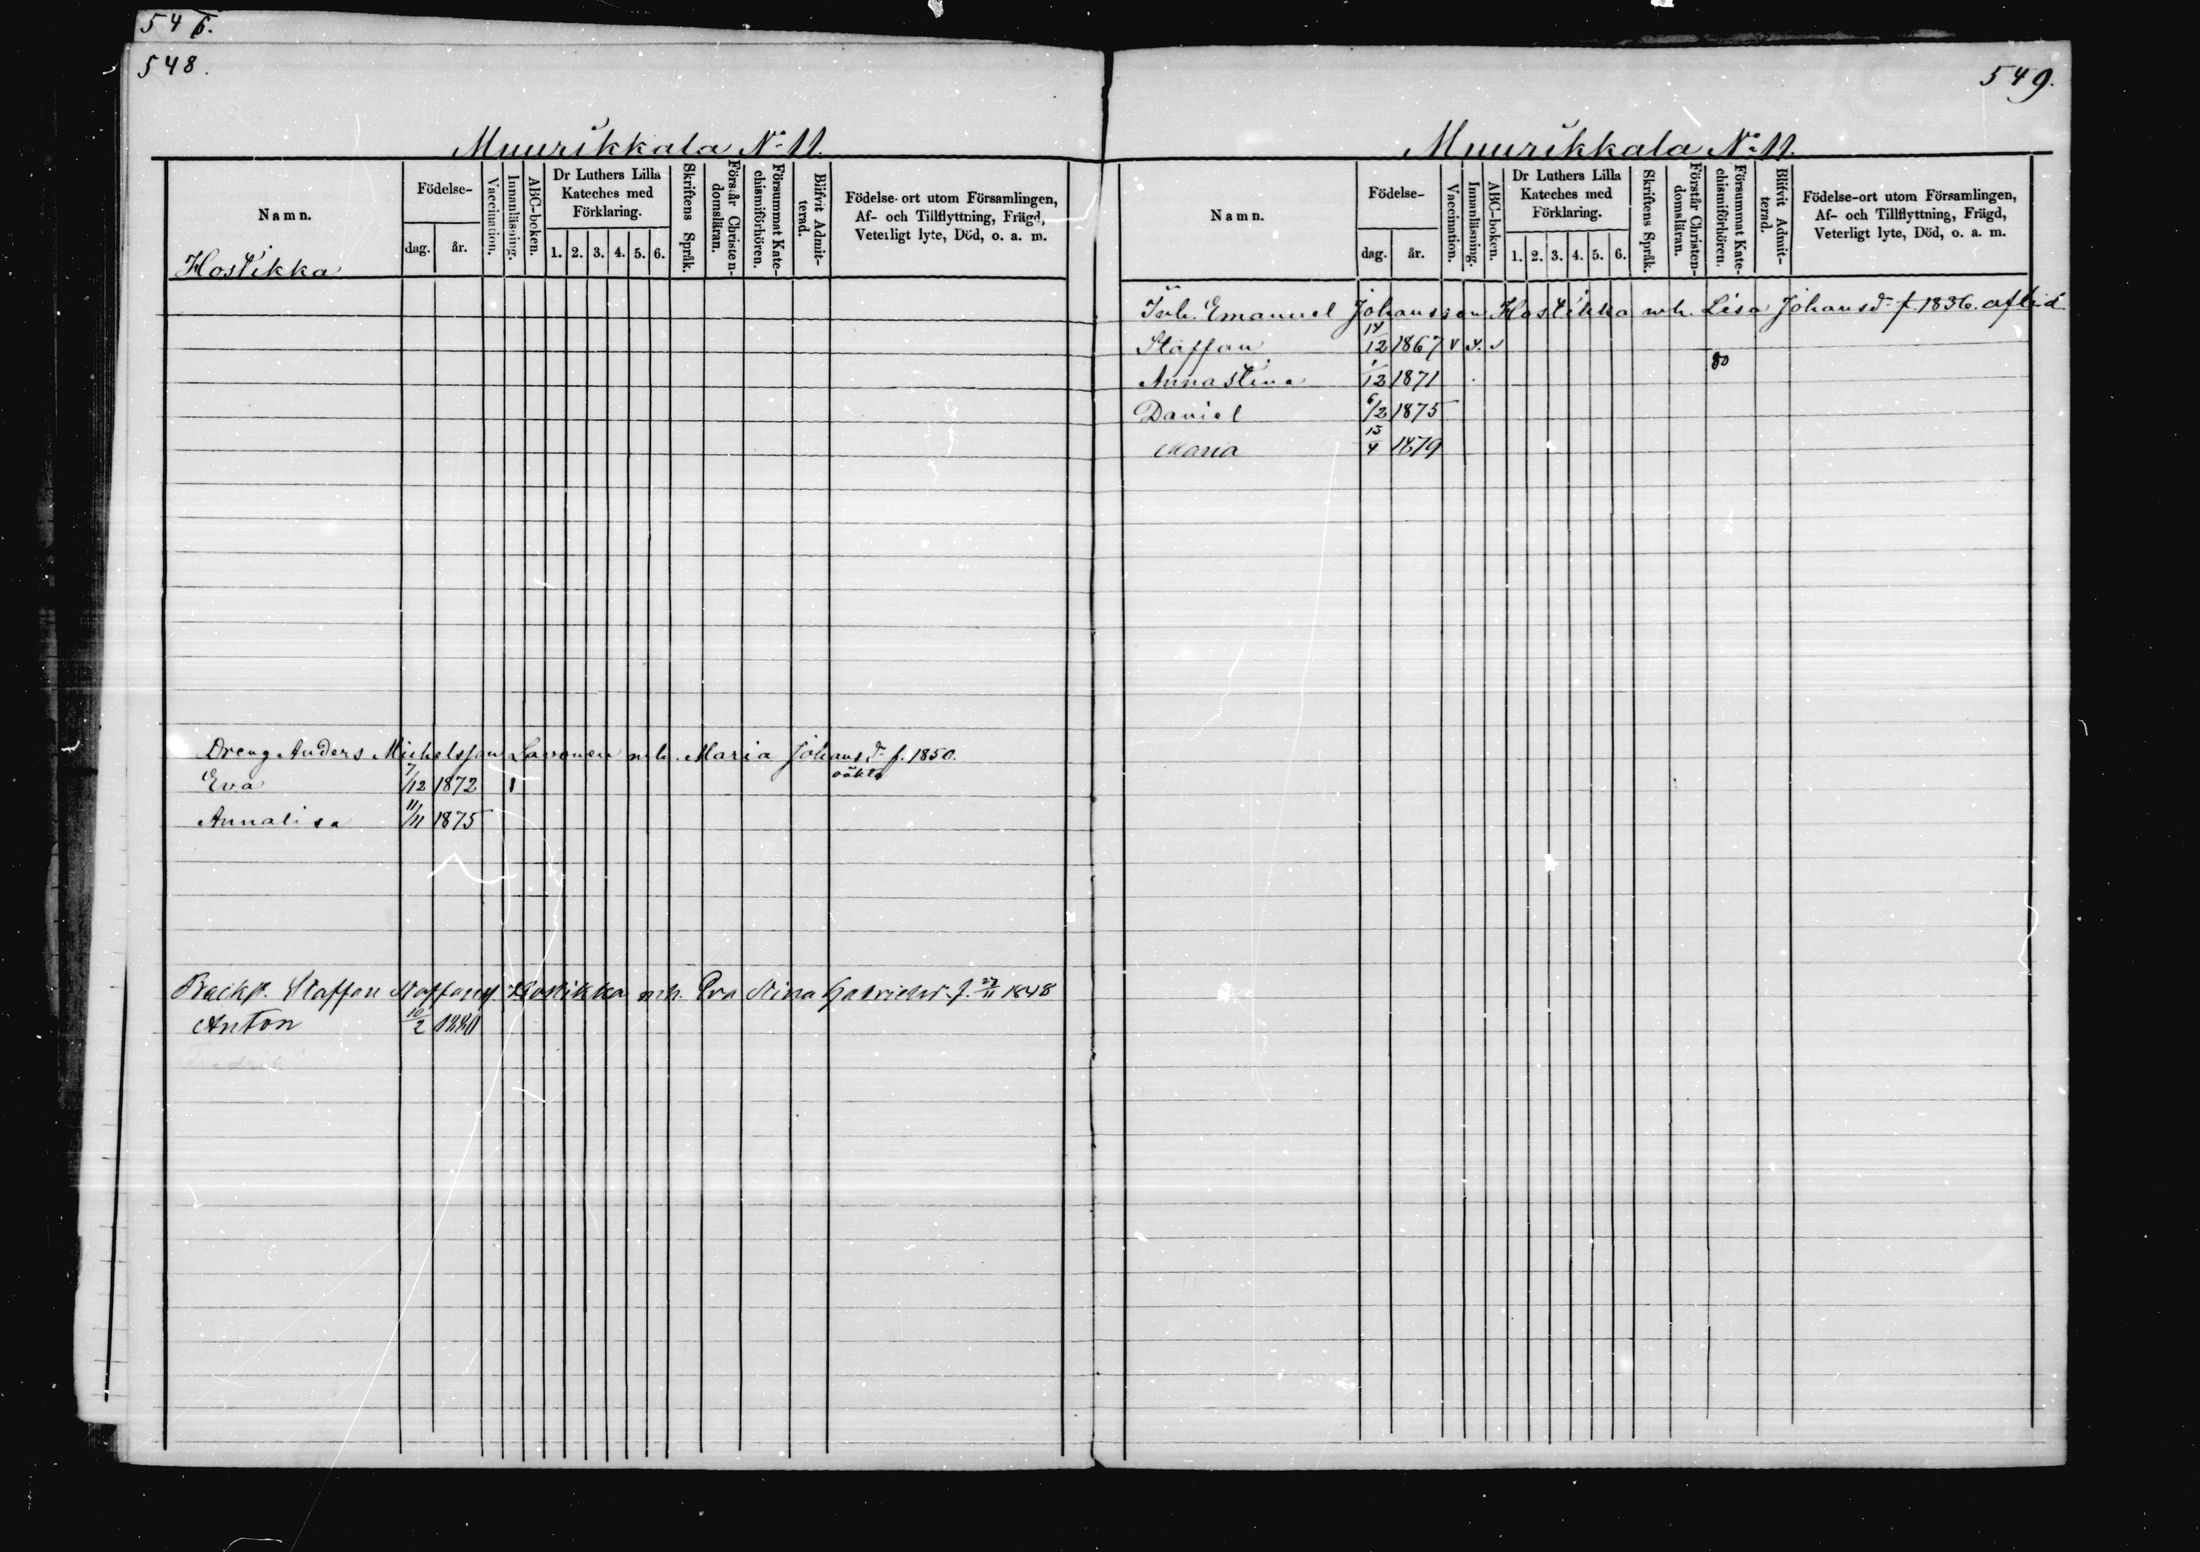 546.
548.
Muurikkala No 11.
Namn.
Födelse-
dag.
år.
Vaccination.
Innanläsning.
ABC-boken.
Dr Luthers Lilla
Kateches med
Förklaring.
1. 2. 3. 4. 5. 6.
Skriftens Språk.
Förstår Christen-
domsläran.
Försummat Kate-
chismiförhören.
Blifvit Admit-
terad.
Födelse-ort utom Församlingen,
Af- och Tillflyttning, Frägd,
Veterligt lyte, Död, o. a. m.
Hostikka
Dreng Anders Michelsson Lavonen m.h. Maria Johansdr f. 1850.
oäkta
Eva 7/12 1872 1
Annalisa 11/11 1875
Backst. Staffan Staffans. Hostikka m.h. Eva Stina Gabrielsd. f. 27/11 1848
Anton 16/2 1880
549.
Muurikkala No 11.
Namn.
Födelse-
dag.
år.
Vaccination.
Innanläsning.
ABC-boken.
Dr Luthers Lilla
Kateches med
Förklaring.
1. 2. 3. 4. 5. 6.
Skriftens Språk.
Förstår Christen-
domsläran.
Försummat Kate-
chismiförhören.
Blifvit Admit-
terad.
Födelse-ort utom Församlingen,
Af- och Tillflyttning, Frägd,
Veterligt lyte, Död, o. a. m.
Inh. Emanuel Johansson Hostikka m.h. Lisa Johansdr f. 1836. aflid.
Staffan 14/12 1867 v v. v
80
Annastina 1/12 1871
Daniel 6/2 1875
Maria 15/4 1879